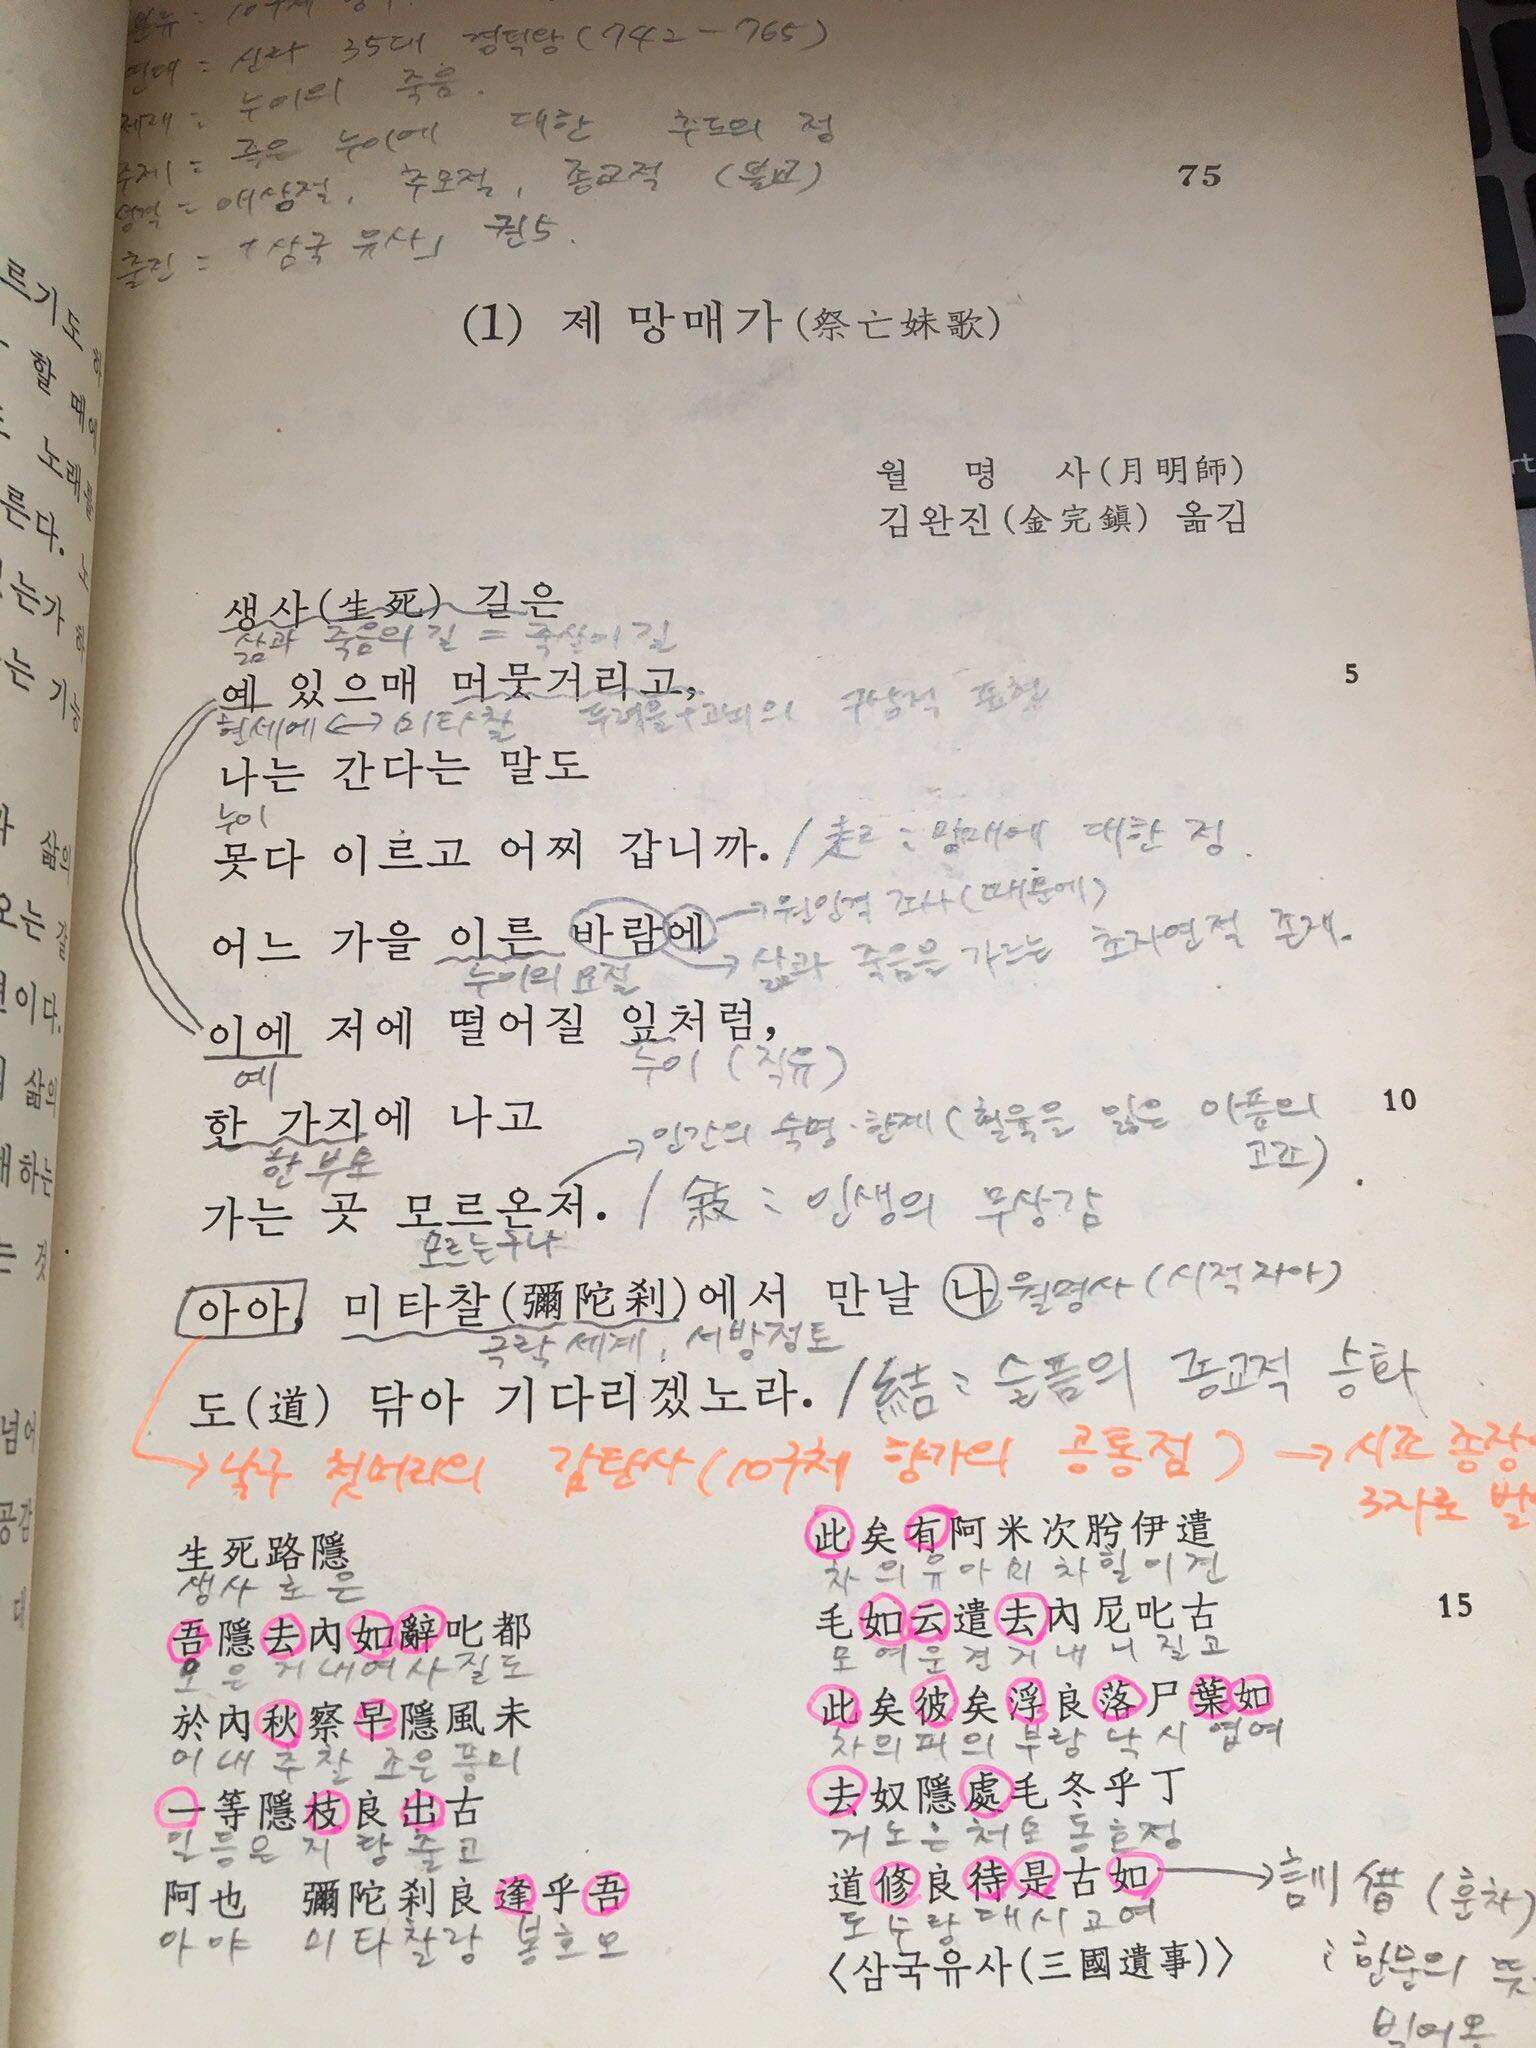 연대 = 신라 35대 경덕왕(742-765)
제재 = 누이의 죽음.
주제 = 죽은 누이에 대한 추도의 정
성격 = 애상적, 추모적, 종교적 (불교)
출전 = 「삼국유사」 권5.
75
(1) 제망매가(祭亡妹歌)
월명사(月明師)
김완진(金完鎭) 옮김
생사(生死) 길은
삶과 죽음의 길 = 죽살이 길
예 있으매 머뭇거리고,
5
현세에 ↔ 미타찰 두려움, 구상적 표현
나는 간다는 말도
누이
못다 이르고 어찌 갑니까. / 起 : 망매에 대한 정.
어느 가을 이른 바람에 → 원인격 조사(때문에)
누이의 요절 → 삶과 죽음을 가르는 초자연적 존재.
이에 저에 떨어질 잎처럼,
예 누이 (직유)
한 가지에 나고
10
한 부모 → 인간의 숙명·한계(혈육을 잃은 아픔의 고조)
가는 곳 모르온저. / 敍 : 인생의 무상감
모르는구나
아아, 미타찰(彌陀刹)에서 만날 나 월명사 (시적 자아)
극락세계, 서방정토
도(道) 닦아 기다리겠노라. / 結 : 슬픔의 종교적 승화
→ 낙구 첫머리의 감탄사(10구체 향가의 공통점) → 시조 종장
3자로
生死路隱
생사로은
此矣有阿米次肹伊遣
차의유아미차힐이견
吾隱去內如辭叱都
오은거내여사질도
毛如云遣去內尼叱古
모여운견거내니질고
15
於內秋察早隱風未
어내추찰조은풍미
此矣彼矣浮良落尸葉如
차의피의부랑낙시엽여
一等隱枝良出古
일등은지랑출고
去奴隱處毛冬乎丁
거노은처모동호정
阿也 彌陀刹良逢乎吾
아야 미타찰랑봉호오
道修良待是古如
도수랑대시고여
→ 訓借 (훈차)
: 한문의 뜻
빌어옴
〈삼국유사(三國遺事)〉